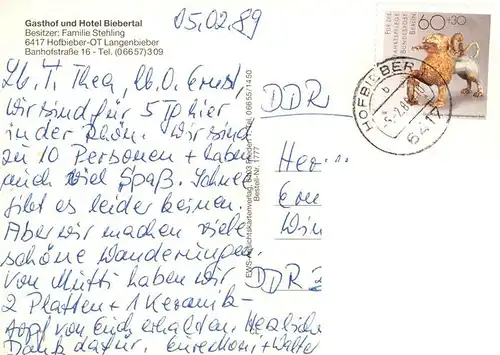 Gasthof und Hotel Biebertal
Besitzer: Familie Stehling
6417 Hofbieber-OT Langenbieber
Banhofstraße 16 - Tel. (06657) 309
05.02.89
Lb. T. Thea, lb. O. Ernst
wir sind für 5 Tg hier
in der Rhön. Wir sind
zu 10 Personen + haben
auch viel Spaß. Schnee
gibt es leider keinen.
Aber wir machen viele
schöne Wanderungen.
Von Mutti haben wir
2 Platten + 1 Keramik-
topf von Euch erhalten. Herzliche
Dank dafür. Eure + Walter
EWS-Ansichtskartenverlag
Bestell-Nr. 1777
FÜR DIE WOHLFAHRTSPFLEGE
DEUTSCHE BUNDESPOST
BERLIN
60+30
HOFBIEBER
b
6417
DDR
Her
Ern
Win
DDR